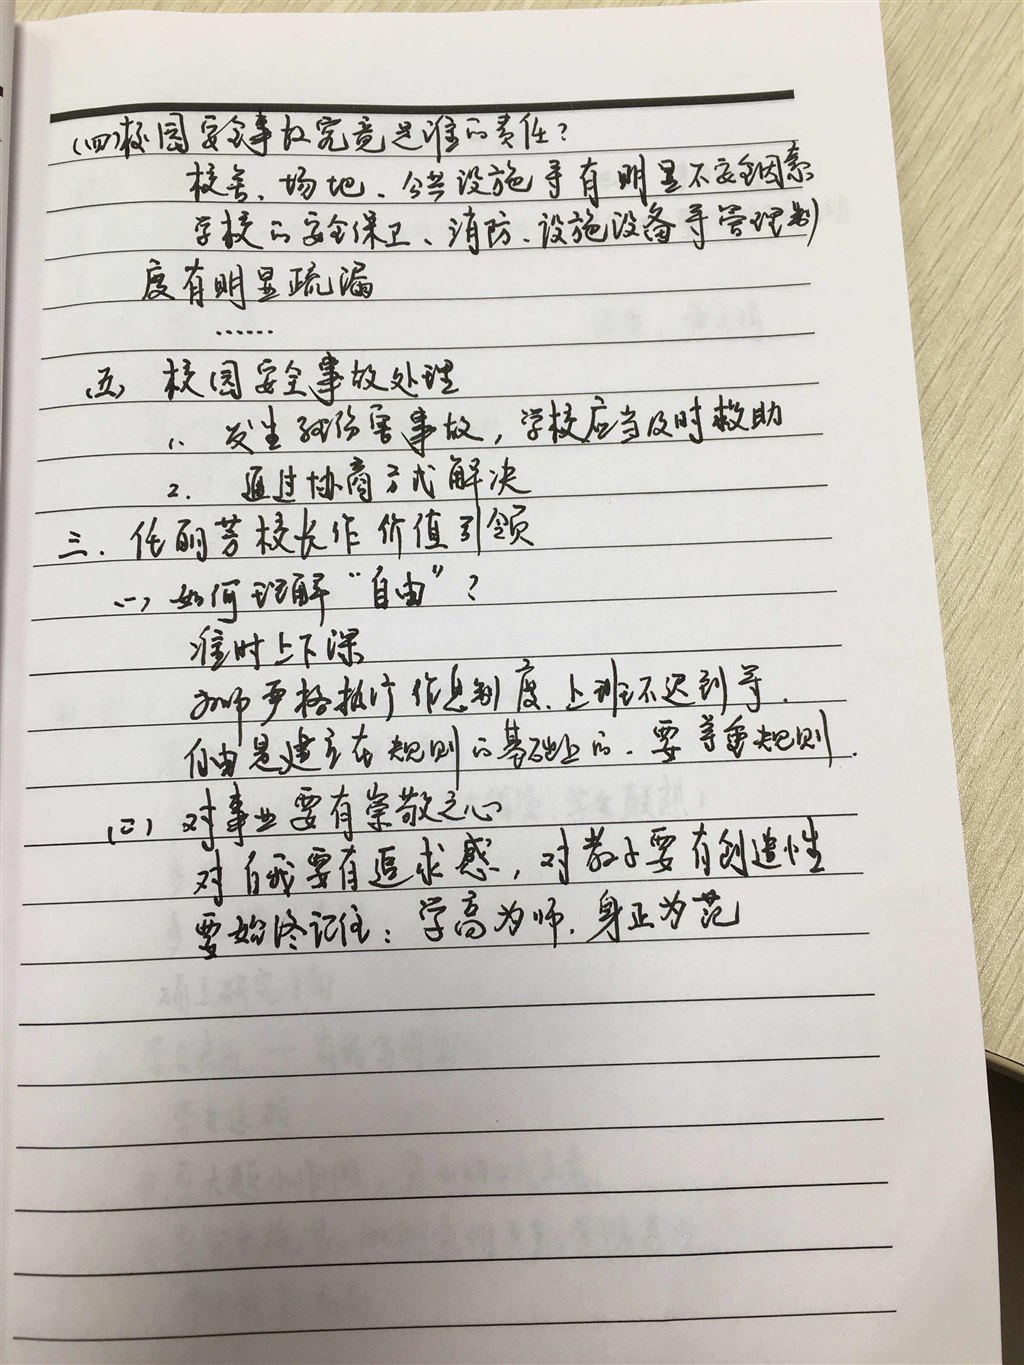 (四)校园安全事故究竟是谁的责任?
校舍、场地、公共设施等有明显不安全因素
学校的安全保卫、消防、设施设备等管理制
度有明显疏漏
……
(五) 校园安全事故处理
1. 发生伤害事故,学校应当及时救助
2. 通过协商方式解决
三.任丽芳校长作价值引领
(一) 如何理解“自由”?
准时上下课
教师严格执行作息制度、上班不迟到等.
自由是建立在规则的基础上的.要尊重规则.
(二) 对事业要有崇敬之心
对自我要有追求感,对教学要有创造性
要始终记住:学高为师.身正为范